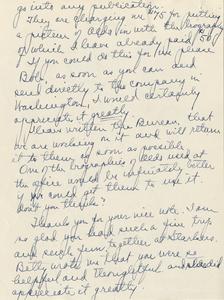 go into any publication.
They are charging me $75 for putting
a picture of Olds in with the biography
of which I have already paid $50
If you could do this for me please
Bob, as soon as you can and
send directly to the company in
Washington, I would certainly
appreciate it greatly.
I have written the Bureau, that
we are working on it and will return
it to them as soon as possible
One of the biographies of Leeds used at
the office would be infinitely better
if we could get them to use it.
Don't you think?
Thank you for your nice note. I am
so glad you had such a fine trip
and such fun together at
Betty wrote me that you were so
helpful and thoughtful and
appreciate it greatly.